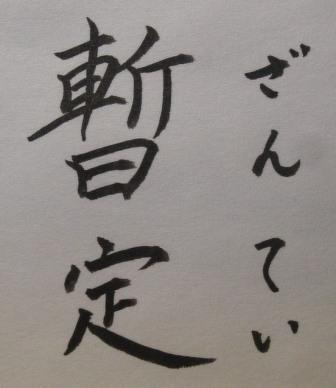 暫定
ざんてい